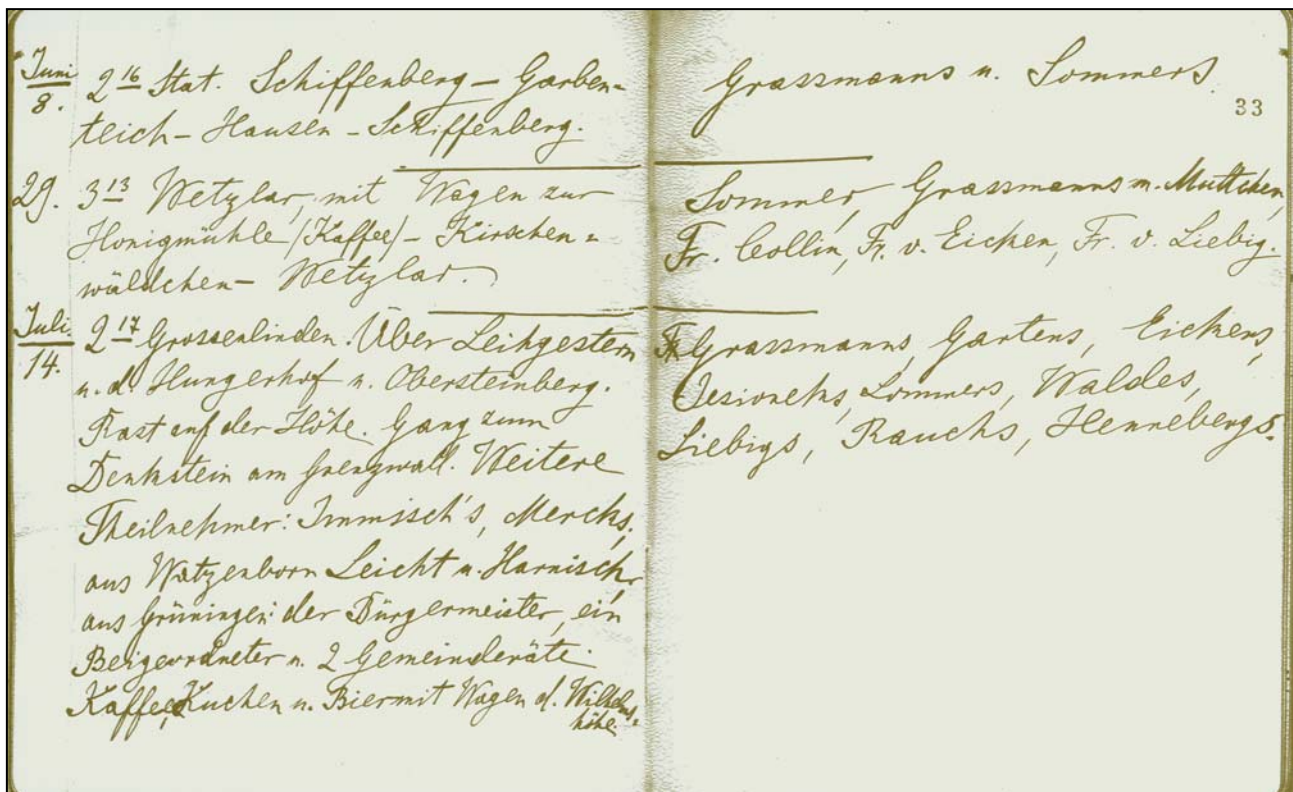 Juni
8. 2 16 Stat. Schiffenberg – Garben=
teich – Hausen – Schiffenberg.
29. 3 13 Wetzlar, mit Wagen zur
Honigmühle /Kaffee/ – Kirschen=
wäldchen – Wetzlar.
Juli.
14. 2 17 Grossenlinden. Über Leihgestern
u. d. Hungerhof n. Obersteinberg.
Rast auf der Höhe. Gang zum
Denkstein am Grenzwall. Weitere
Theilnehmer: Immisch's, Mercks,
aus Watzenborn Leicht u. Harnisch,
aus Grüningen: der Bürgermeister, ein
Beigeordneter u. 2 Gemeinderäte.
Kaffee, Kuchen u. Bier mit Wagen d. Wilhelms=
höhe.
Grassmanns u. Sommers.
33
Sommer, Grassmanns m. Muttchen,
Fr. Collin, Fr. v. Eicken, Fr. v. Liebig.
Grassmanns, Gartens, Eickens,
Jesioneks, Sommers, Waldes,
Liebigs, Rauchs, Hennebergs.